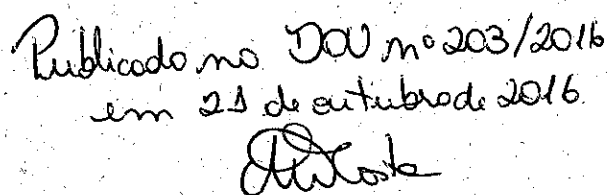 Publicado no DOU nº 203/2016
em 21 de outubro de 2016.